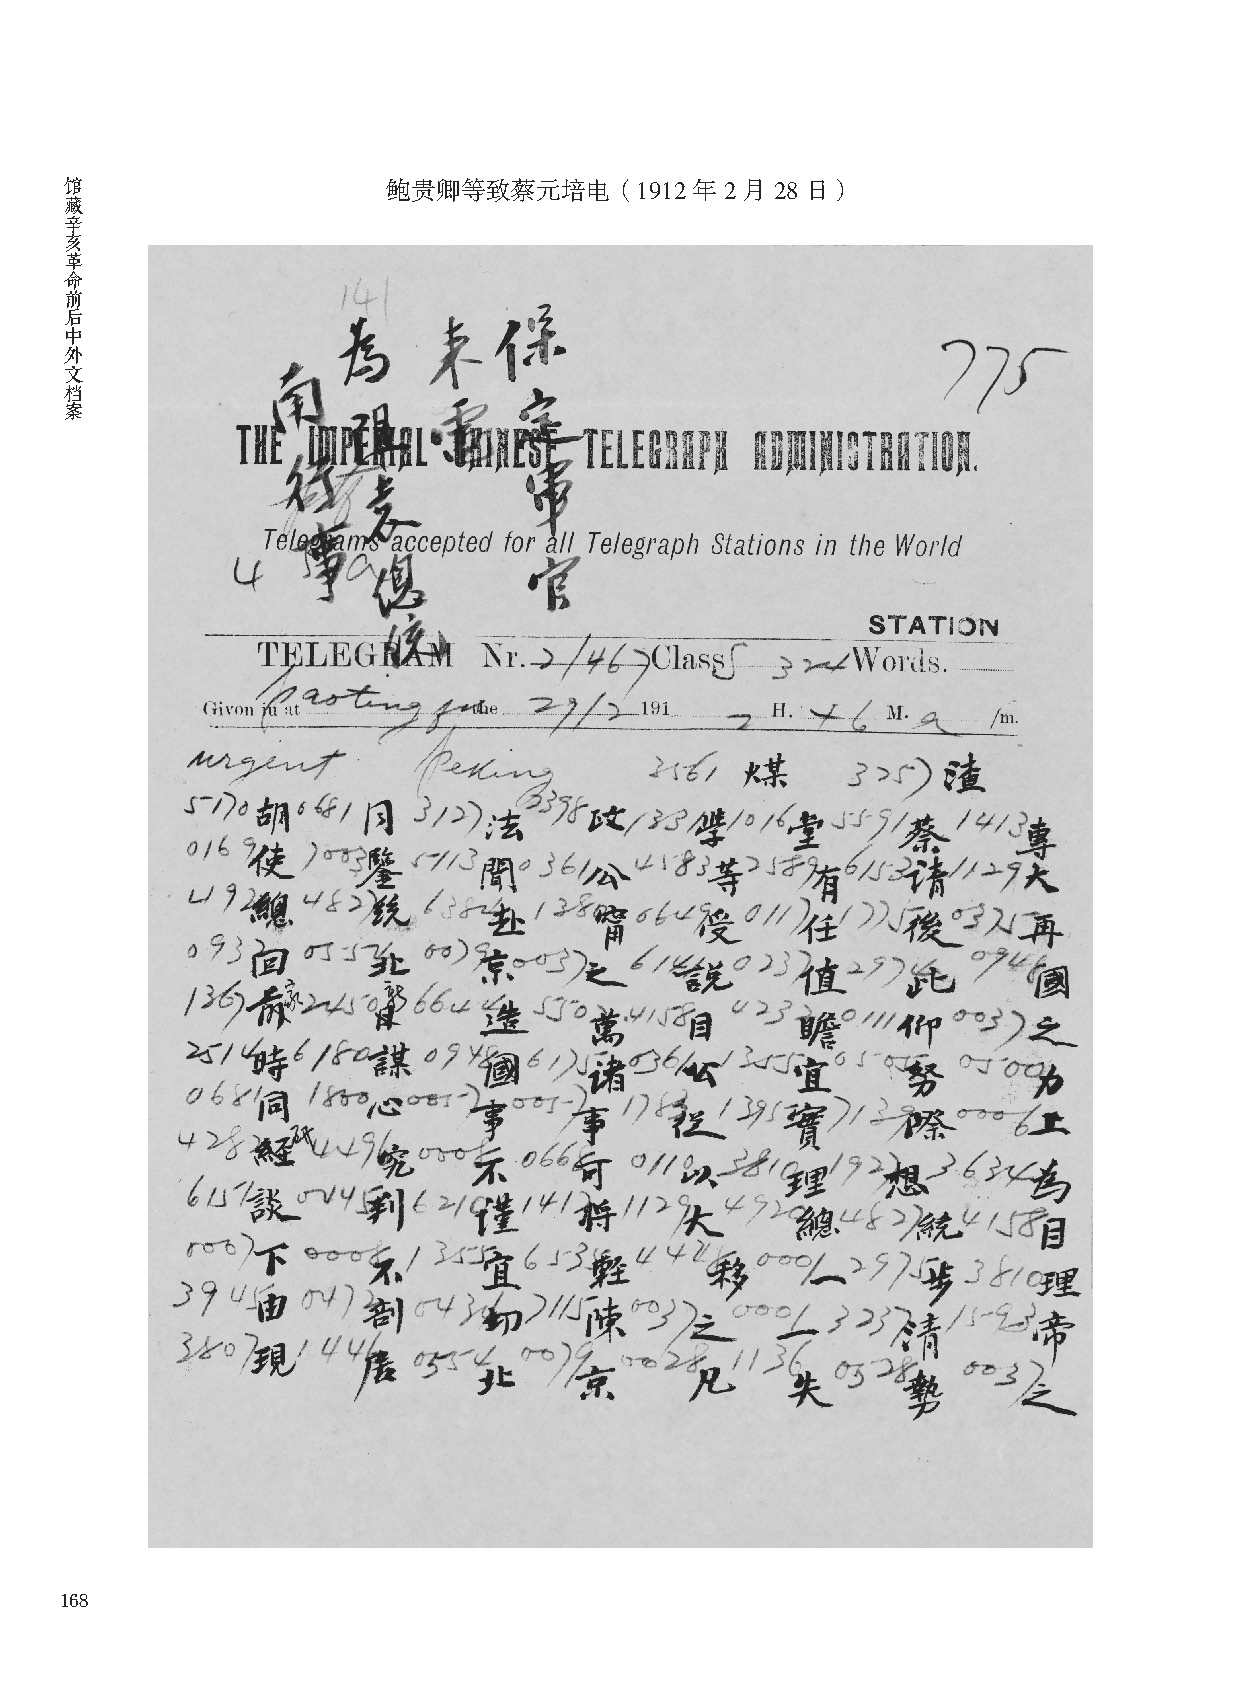 馆藏辛亥革命前后中外文档案
鲍贵卿等致蔡元培电（1912 年 2 月 28 日）
141
保定軍官
来電
為
袁總統
南行事
775
THE IMPERIAL CHINESE TELEGRAPH ADMINISTRATION.
Telegrams accepted for all Telegraph Stations in the World
4
STATION
TELEGRAM Nr. 2/467 Class S 324 Words.
Given in at Paotingfu the 29/2 191 2 H. 46 M. a /m.
urgent Peking 2561 煤 3257 渣
5170 胡 0681 同 3127 法 2398 政 1331 學 1016 堂 5591 蔡 1413 專
0169 使 7003 鑒 5113 聞 0361 公 4583 等 2589 有 6153 请 1129 大
4920 總 4827 統 6384 赴 1380 甯 0649 受 0117 任 1775 後 0375 再
0932 回 0554 北 0079 京 0037 之 6141 説 0237 值 2974 此 0948 國
1367 家 2450 新 6644 造 5502 萬 4158 目 4232 瞻 0111 仰 0037 之
2514 時 6180 謀 0948 國 6175 諸 0361 公 1355 宜 0505 努 0500 力
0681 同 1800 心 0057 事 0057 事 1783 從 1395 實 7139 際 0006 上
4282 經 4496 究 0008 不 0668 可 0110 以 3810 理 1927 想 3634 為
6151 談 0445 判 6210 謹 1412 将 1129 大 4920 總 4827 統 4158 目
0007 下 0008 不 1355 宜 6535 輕 4448 移 0001 一 2975 步 3810 理
3945 由 0472 剖 0436 切 7115 陳 0037 之 0001 一 3237 清 1593 帝
3807 現 1446 居 0554 北 0079 京 0028 凡 1136 失 0528 勢 0037 之
168